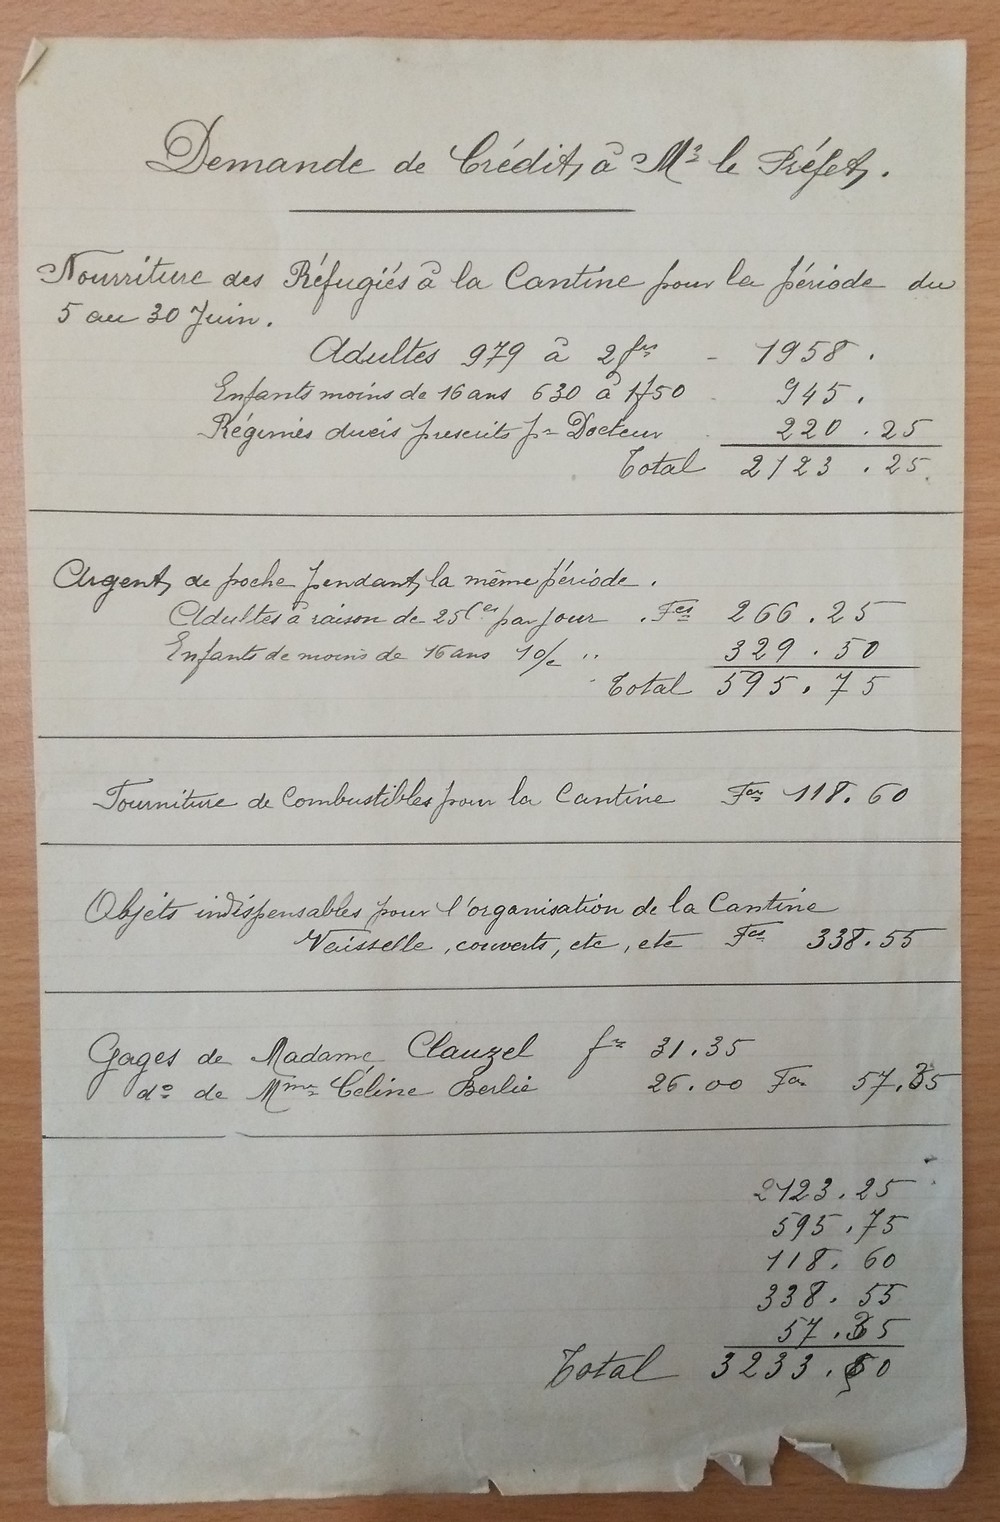 Demande de Crédit, à Mr le Préfet.
Nourriture des Réfugiés à la Cantine pour la période du
5 au 30 Juin.
Adultes 979 à 2 frs - 1958.
Enfants moins de 16 ans 630 à 1f50 - 945.
Régimes prescrits pr Docteur - 220.25
Total 2123.25
Argent de poche pendant la même période.
Adultes à raison de 25 Ces par jour. Fcs 266.25
Enfants de moins de 16 ans 10/c " 329.50
Total 595.75
Fourniture de Combustibles pour la Cantine Fcs 118.60
Objets indispensables pour l'organisation de la Cantine
Vaisselle, couverts, etc, etc Fcs 338.55
Gages de Madame Clauzel fr 31.35
do de Mme Céline Berlié 26.00 Fcs 57.35
2123.25
595.75
118.60
338.55
57.35
Total 3233.50